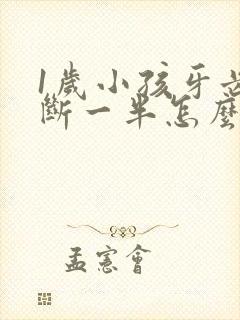 1歲小孩牙齒
斷一半怎麼
孟憲會